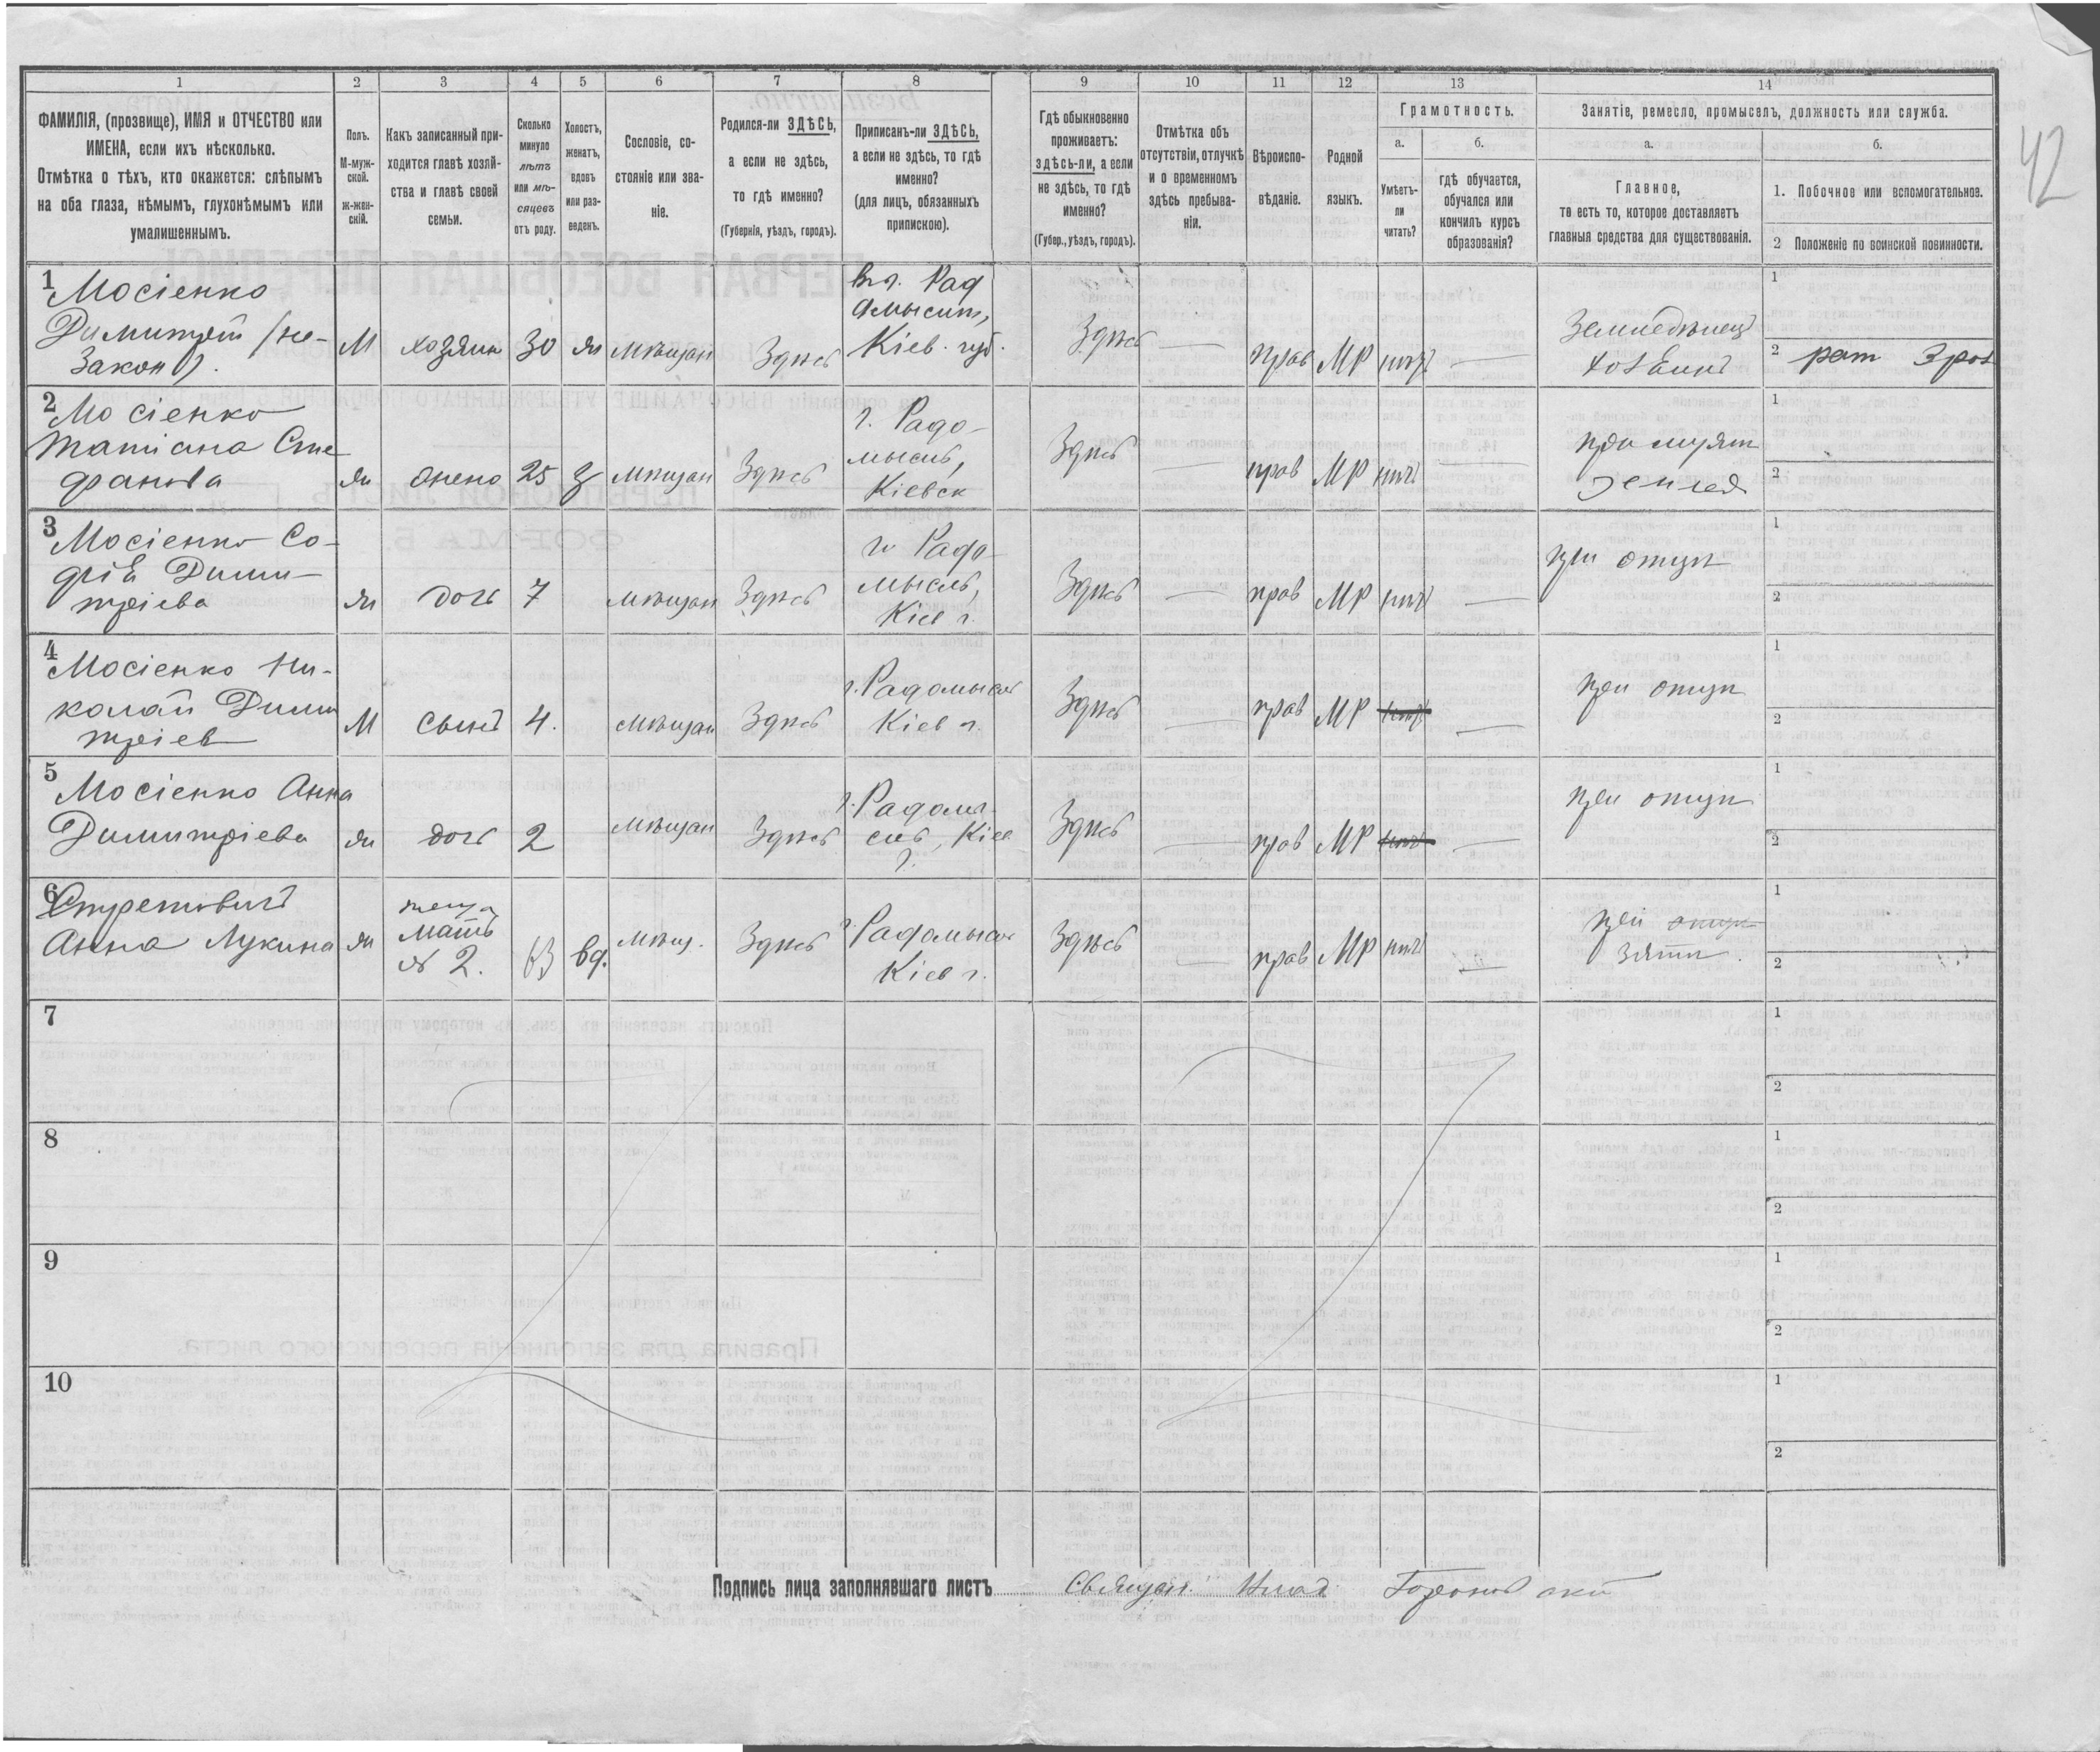 42
1 2 3 4 5 6 7 8 9 10 11 12 13 14
ФАМИЛІЯ, (прозвище), ИМЯ и ОТЧЕСТВО или
ИМЕНА, если ихъ нѣсколько.
Отмѣтка о тѣхъ, кто окажется: слѣпымъ
на оба глаза, нѣмымъ, глухонѣмымъ или
умалишеннымъ.
Полъ.
М-муж-
ской.
Ж-жен-
скій.
Какъ записанный при-
ходится главѣ хозяй-
ства и главѣ своей
семьи.
Сколько
минуло
лѣтъ
или мѣ-
сяцевъ
отъ роду.
Холостъ,
женатъ,
вдовъ
или раз-
веденъ.
Сословіе, со-
стояніе или зва-
ніе.
Родился-ли ЗДѢСЬ,
а если не здѣсь,
то гдѣ именно?
(Губернія, уѣздъ, городъ).
Приписанъ-ли ЗДѢСЬ,
а если не здѣсь, то гдѣ
именно?
(для лицъ, обязанныхъ
припискою).
Гдѣ обыкновенно
проживаетъ:
здѣсь-ли, а если
не здѣсь, то гдѣ
именно?
(Губер., уѣздъ, городъ).
Отмѣтка объ
отсутствіи, отлучкѣ
и о временномъ
здѣсь пребыва-
ніи.
Вѣроиспо-
вѣданіе.
Родной
языкъ.
Грамотность.
а.
Умѣетъ-
ли
читать?
б.
гдѣ обучается,
обучался или
кончилъ курсъ
образованія?
Занятіе, ремесло, промыселъ, должность или служба.
а.
Главное,
то есть то, которое доставляетъ
главныя средства для существованія.
б.
1. Побочное или вспомогательное.
2 Положеніе по воинской повинности.
1 Мосіенко
Димитрій (не-
закон).
М хозяин 30 ж мѣщан Здѣсь
Кіев. губ.
Здѣсь — прав МР нѣтъ —
Земледѣлец
1
2 рат
2 Мосіенко
Татіана Сте
фанова
ж 25 з мѣщан Здѣсь
г. Радо-
мысль,
Кіевск
Здѣсь — прав МР нѣтъ —
1
2
3 Мосіенко Со-
фія Дими-
тріева
ж дочь 7 мѣщан Здѣсь
г. Радо-
мысль,
Кіев г.
Здѣсь — прав МР нѣтъ —
при отцѣ
1
2
4 Мосіенко Ни-
колай Дими
тріев
М сынъ 4. мѣщан Здѣсь
г. Радомысль
Кіев г.
Здѣсь — прав МР нѣтъ —
при отцѣ
1
2
5 Мосіенко Анна
Димитріева
ж дочь 2 мѣщан Здѣсь
г. Радомы-
сль, Кіев
г.
Здѣсь — прав МР нѣтъ —
при отцѣ
1
2
6
Анна Лукина
ж
мать
№ 2.
63 вд. мѣщ. Здѣсь
г. Радомысль
Кіев г.
Здѣсь — прав МР нѣтъ —
при отцѣ
зяти.
1
2
7 1
2
8 1
2
9 1
2
10 1
2
Подпись лица заполнявшаго листъ